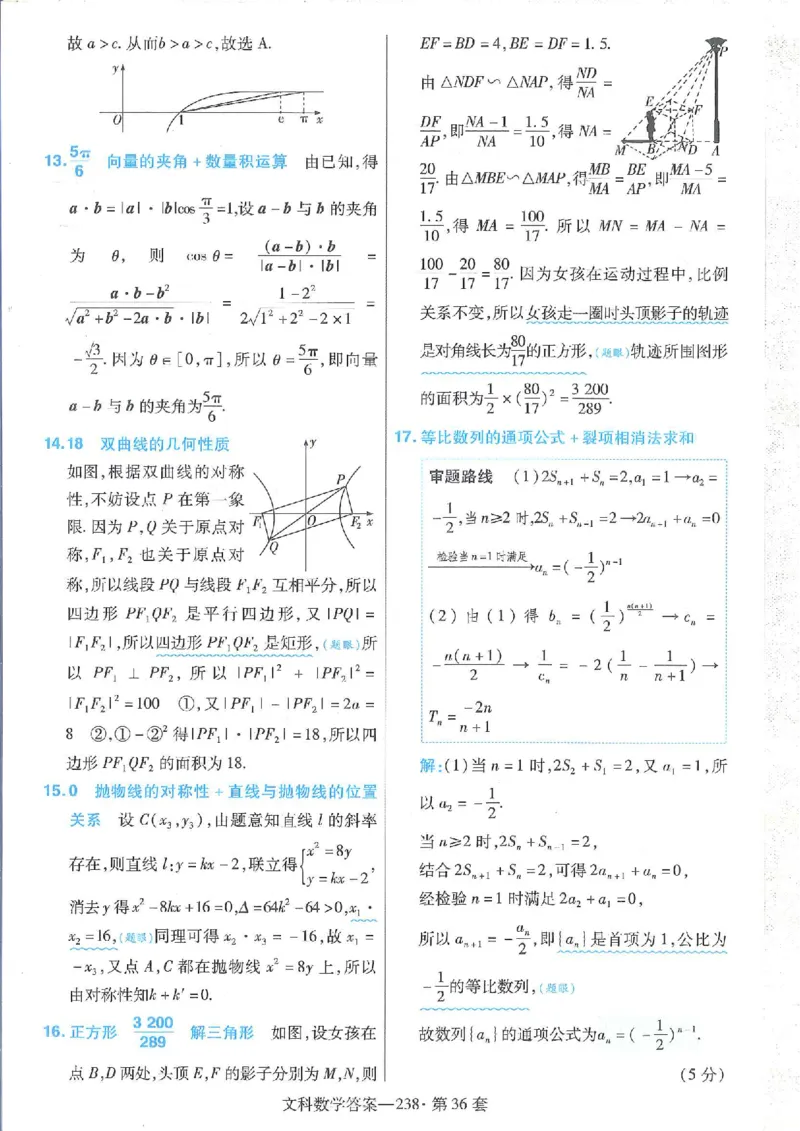 故 a>c. 从而b>a>c,故选 A.
y
O 1 e π x
13. 5π/6 向量的夹角+数量积运算 由已知,得
a·b=|a|·|b|cos π/3=1,设 a-b 与 b 的夹角
为 θ, 则 cos θ = (a-b)·b/|a-b|·|b| =
a·b-b²/√a²+b²-2a·b·|b| = 1-2²/2√1²+2²-2×1 =
-√3/2. 因为 θ∈[0,π],所以 θ=5π/6,即向量
a-b 与 b 的夹角为5π/6.
14.18 双曲线的几何性质
如图,根据双曲线的对称
性,不妨设点 P 在第一象
限. 因为 P,Q 关于原点对
称,F₁,F₂ 也关于原点对
y
P
F₁ O F₂ x
Q
称,所以线段 PQ 与线段 F₁F₂ 互相平分,所以
四边形 PF₁QF₂ 是平行四边形,又 |PQ| =
|F₁F₂|,所以四边形 PF₁QF₂ 是矩形,(题眼)所
以 PF₁ ⊥ PF₂, 所以 |PF₁|² + |PF₂|² =
|F₁F₂|²=100 ①,又|PF₁|-|PF₂|=2a=
8 ②,①-②² 得|PF₁|·|PF₂|=18,所以四
边形 PF₁QF₂ 的面积为 18.
15.0 抛物线的对称性+直线与抛物线的位置
关系 设 C(x₃,y₃),由题意知直线 l 的斜率
存在,则直线 l:y=kx-2,联立得{x²=8y, y=kx-2,
消去 y 得 x²-8kx+16=0,Δ=64k²-64>0,x₁·
x₂=16,(题眼)同理可得 x₂·x₃=-16,故 x₁=
-x₃,又点 A,C 都在抛物线 x²=8y 上,所以
由对称性知k+k′=0.
16. 正方形 3 200/289 解三角形 如图,设女孩在
点 B,D 两处,头顶 E,F 的影子分别为 M,N,则
EF=BD=4,BE=DF=1.5.
由 △NDF∽△NAP,得 ND/NA =
DF/AP,即 NA-1/NA = 1.5/10,得 NA=
P
E F
M B N D A
20/17. 由△MBE∽△MAP,得MB/MA=BE/AP,即MA-5/MA=
1.5/10,得 MA = 100/17. 所以 MN = MA - NA =
100/17 - 20/17 = 80/17. 因为女孩在运动过程中,比例
关系不变,所以女孩走一圈时头顶影子的轨迹
是对角线长为80/17的正方形,(题眼)轨迹所围图形
的面积为1/2×(80/17)²=3 200/289.
17. 等比数列的通项公式+裂项相消法求和
审题路线 (1)2Sₙ₊₁+Sₙ=2,a₁=1→a₂=
-1/2,当 n≥2 时,2Sₙ+Sₙ₋₁=2→2aₙ₊₁+aₙ=0
检验当 n=1 时满足→aₙ=(-1/2)ⁿ⁻¹
(2) 由 (1) 得 bₙ = (1/2)^(n(n+1)/2) → cₙ =
-n(n+1)/2 → 1/cₙ = -2(1/n - 1/n+1) →
Tₙ=-2n/n+1
解:(1)当 n=1 时,2S₂+S₁=2,又 a₁=1,所
以 a₂=-1/2.
当 n≥2 时,2Sₙ+Sₙ₋₁=2,
结合 2Sₙ₊₁+Sₙ=2,可得 2aₙ₊₁+aₙ=0,
经检验 n=1 时满足 2a₂+a₁=0,
所以 aₙ₊₁=-aₙ/2,即{aₙ}是首项为 1,公比为
-1/2的等比数列,(题眼)
故数列{aₙ}的通项公式为aₙ=(-1/2)ⁿ⁻¹.
(5 分)
文科数学答案—238·第 36 套